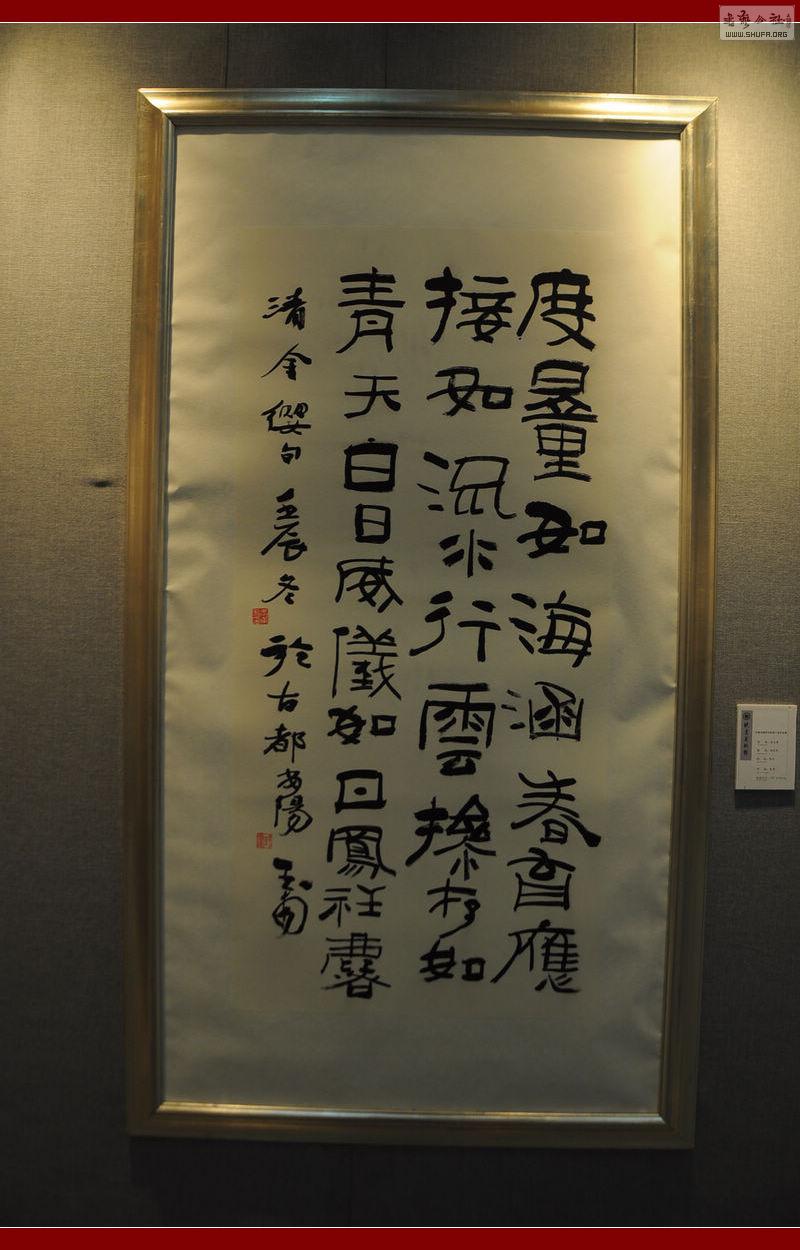 度量如海涵春育應
接如流水行雲操存如
青天白日威儀如丹鳳祥麐
清金纓句壬辰冬
於古都安陽
書藝公社
WWW.SHUFA.ORG